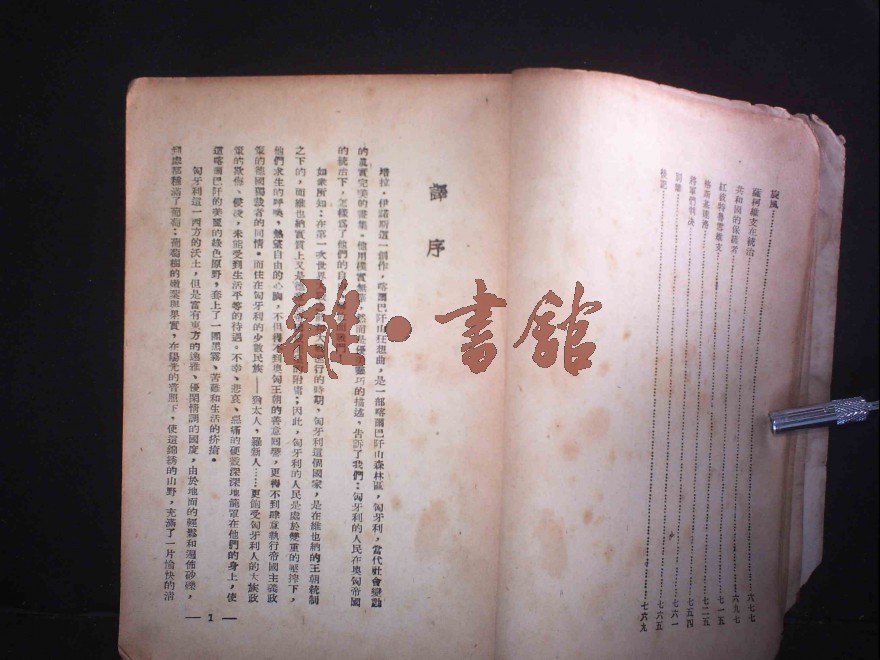 旋風……677
薩柯維支在統治……
共和國的保護者……六九七
紅彼特魯雪維支……七一五
格斯基進路……七二五
將軍們判决……七五四
閉幕……七六一
後記……七六五
七六九
譯序
培拉·伊諾斯這一創作，喀爾巴阡山狂想曲，是一部喀爾巴阡山森林區，匈牙利，當代社會變動
的真實完美的畫集。他用樸實無華，
的描述、告訴了我們：匈牙利的人民在奧匈帝國
的統治下，怎樣爲了他們的自
如衆所知：在第一次世界
行的時期，匈牙利這個國家，是在維也納的王朝統制
之下的，而維也納實質上又是
的附庸；因此，匈牙利的人民是處於雙重的壓搾下，
他們求生的呼喚、熱望自由的心胸，不但得不到奧匈王朝的善意回響，更得不到肆意執行帝國主義政
策的德國獨裁者的同情。而住在匈牙利的少數民族——猶太人、羅新人……更飽受匈牙利人的大族政
策的欺侮、侵凌，未能受到生活平等的待遇。不幸、悲哀、慘痛的硬殼深深地籠罩在他們的身上，使
這喀爾巴阡的美麗的綠色原野，套上了一團黑霧、苦難和生活的疥瘡。
匈牙利這一西方的沃土，但是富有東方的逸雅、優閑情調的國度，由於地面的輕鬆和遍佈砂礫，
到處都種滿了葡萄：葡萄樹的嫩葉與果實，在陽光的普照下，使這錦綉的山野，充滿了一片愉快的清
— 1 —
雜·書館